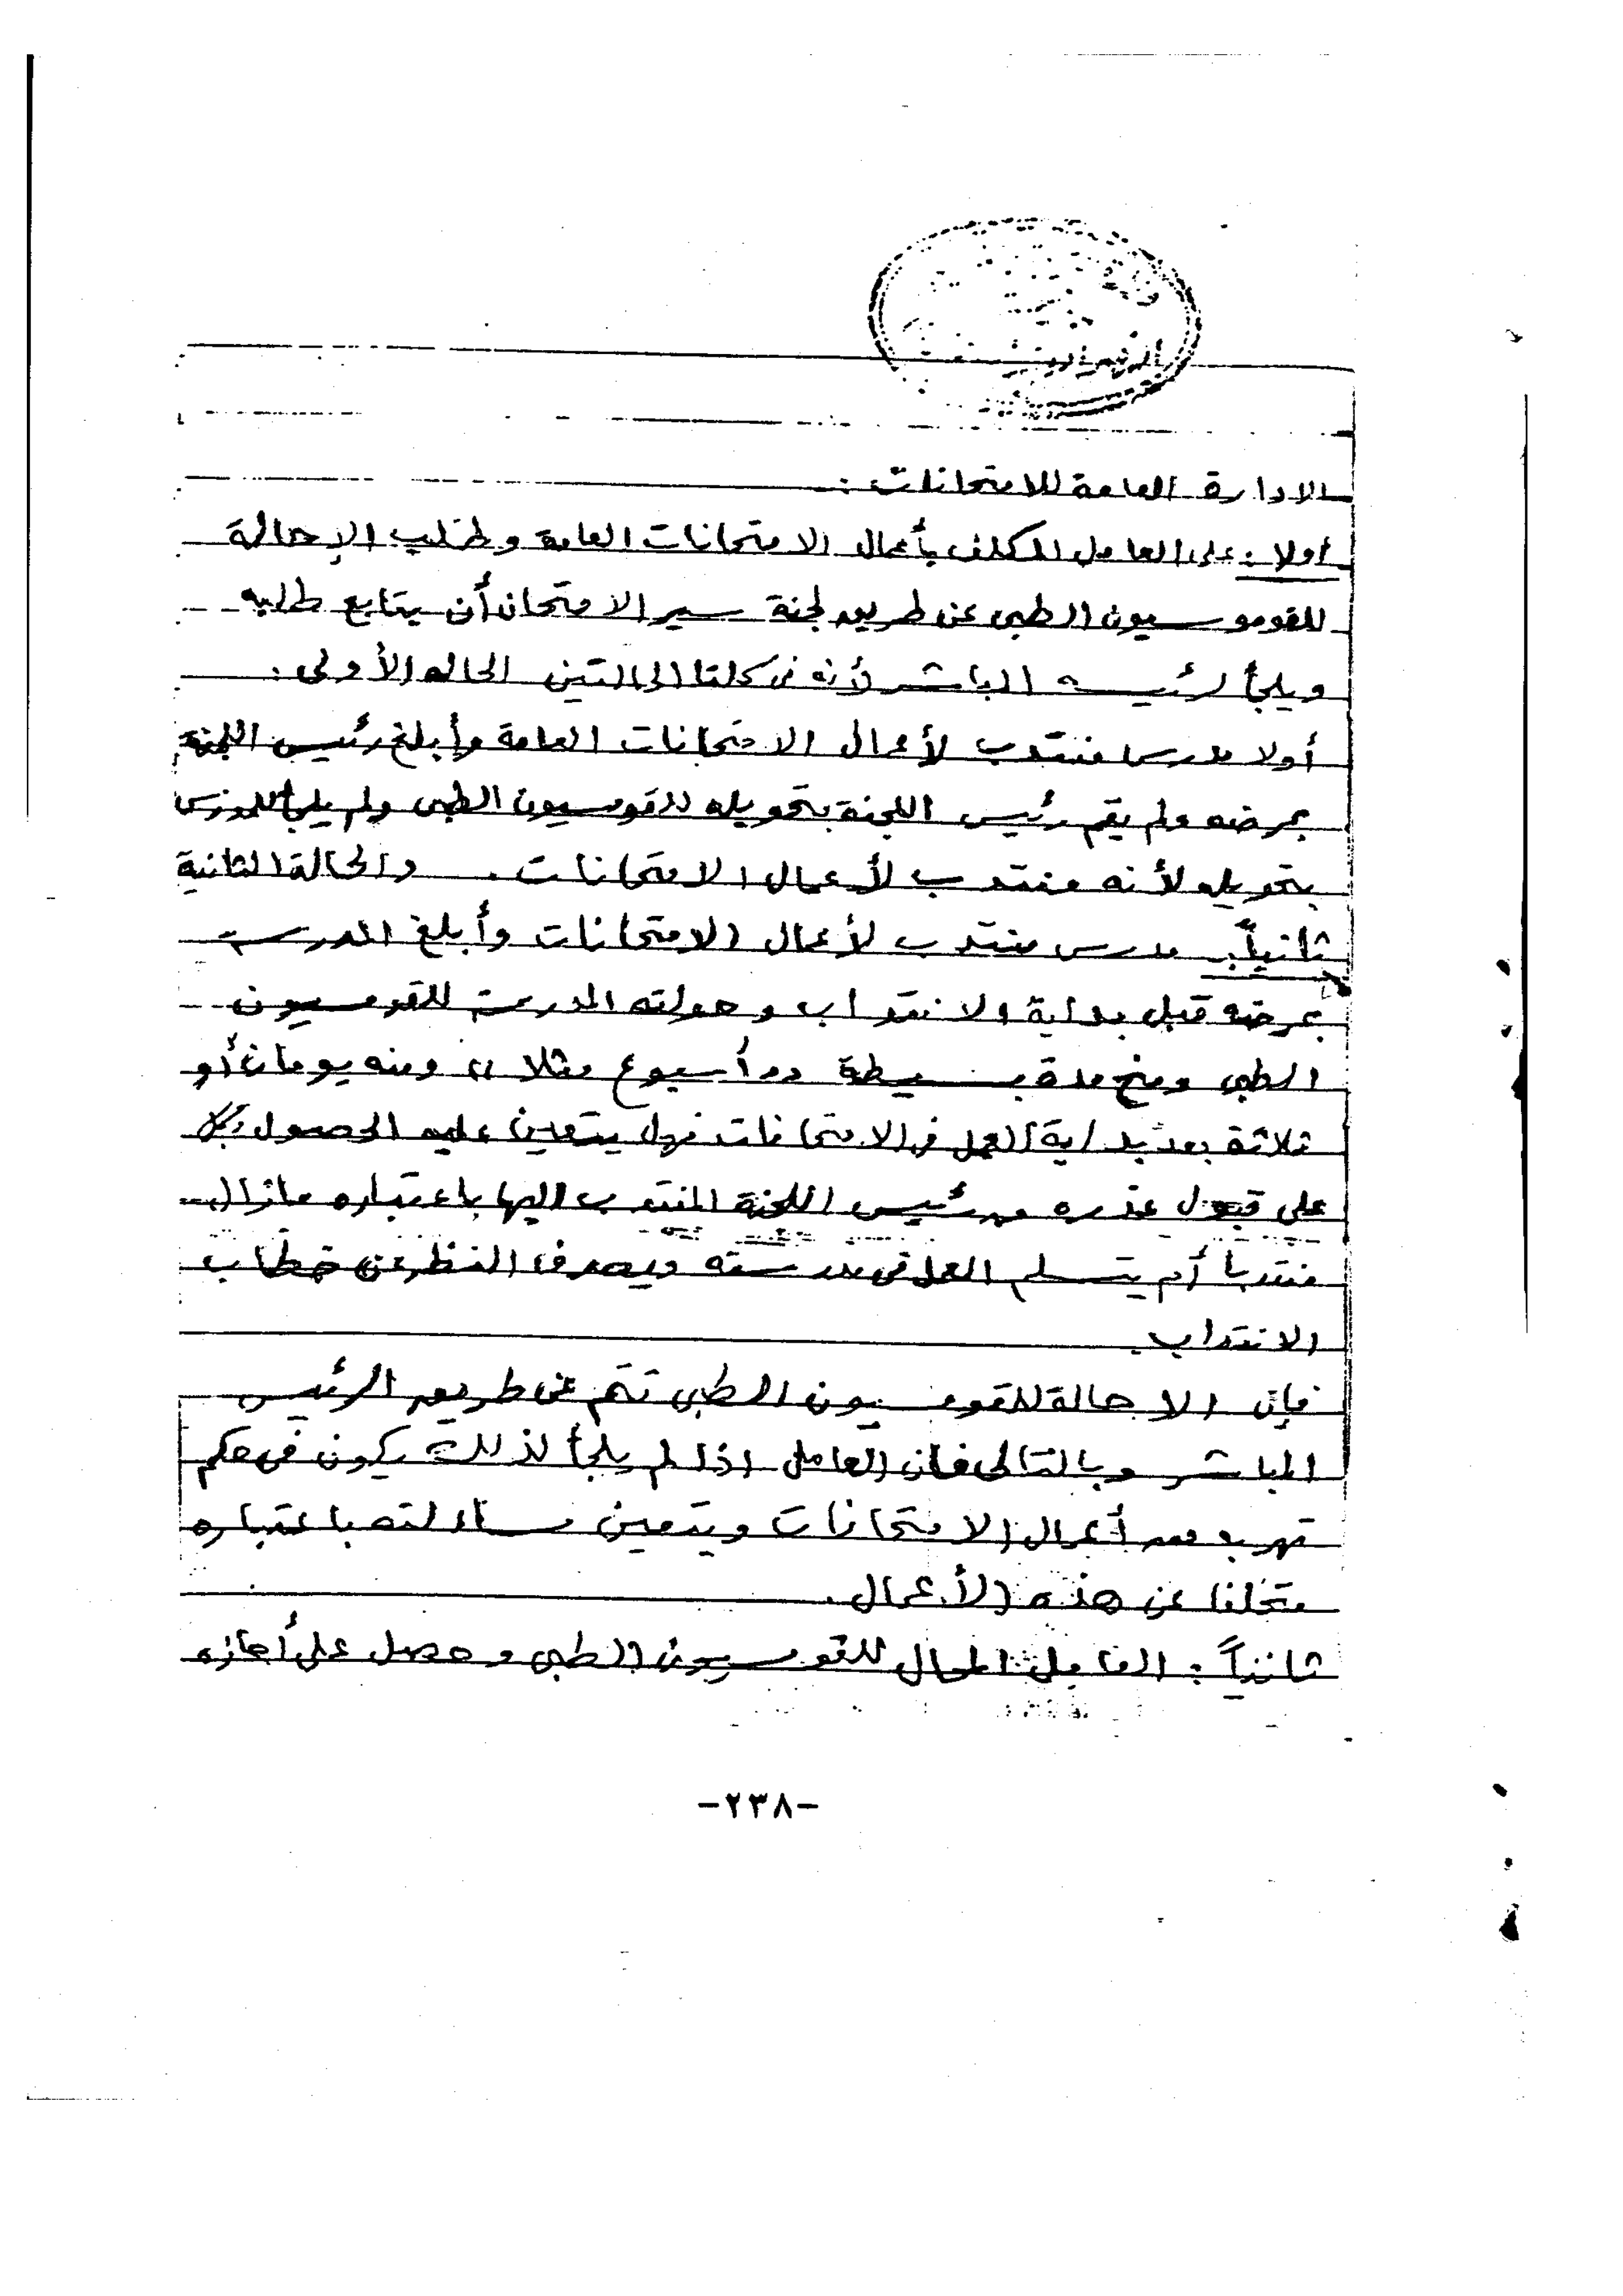 الادارة العامة للامتحانات :
أولا : على العامل المكلف بأعمال الامتحانات العامة وطلب الإحالة
للقومو سيون الطبى عن طريق لجنة سير الامتحان أن يتابع طلبه
ويلجأ لرئيسه المباشر لأنه فى كلتا الحالتين الحاله الأولى :
أولا مدرس منتدب لأعمال الامتحانات العامة وأبلغ رئيس اللجنة
بمرضه ولم يقم رئيس اللجنة بتحويله للقومسيون الطبى ولم يلجأ
بتحويله لأنه منتدب لأعمال الامتحانات . والحالة الثانية
ثانياً : مدرس منتدب لأعمال الامتحانات وأبلغ المدرسة
بمرضه قبل بداية الانتداب وحولته المدرسة للقومسيون
الطبى ومنح مدة بسيطة " أسبوع مثلا " ومنه يومان أو
ثلاثة بعد بداية العمل فى الامتحانات فهل يتعين عليه الحصول
على قبول عذره من رئيس اللجنة المنتدب اليها باعتباره مازال
منتدبا أم يتسلم العمل فى مدرسته ويصرف النظر عن خطاب
الانتداب .
فإن الاحالة للقومسيون الطبى تتم عن طريق الرئيس
المباشر وبالتالى فان العامل اذا لم يلجأ لذلك يكون فى حكم
تهربه من أعمال الامتحانات ويتعين مساءلته باعتباره
متخلفا عن هذه الأعمال .
ثانياً : العامل المحال للقومسيون الطبى وحصل على أجازه
-٢٣٨-